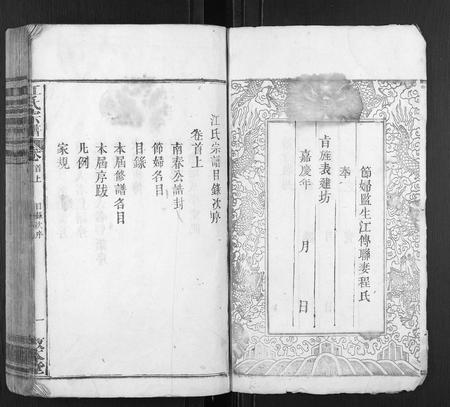 節婦監生江傳聯妻程氏
奉
旨旌表建坊
嘉慶年 月 日
江氏宗譜目錄次序
卷首上
南春公誥封
節婦名目
目錄
本屆修譜名目
本屆序跋
凡例
家規
江氏宗譜
卷首上
目錄次序
一